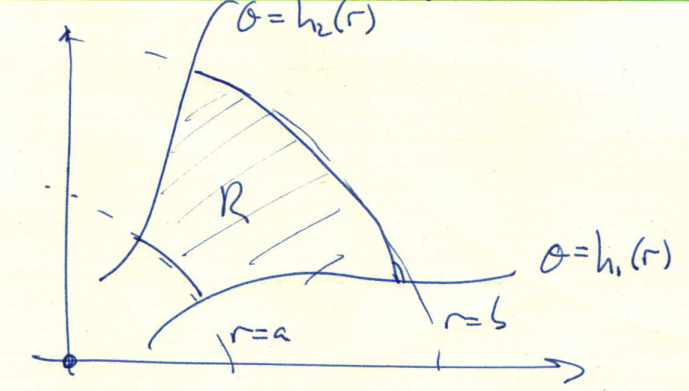 θ=h₂(r)
R
θ=h₁(r)
r=a
r=b